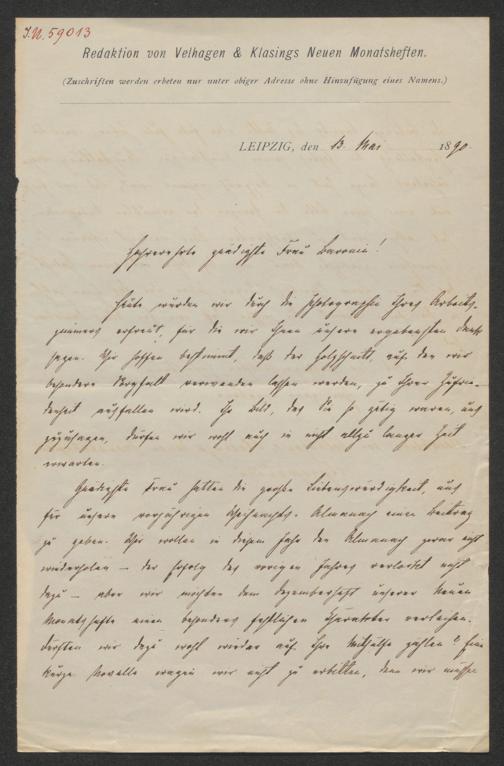 I.N. 59013
Redaktion von Velhagen & Klasings Neuen Monatsheften.
(Zuschriften werden erbeten nur unter obiger Adresse ohne Hinzufügung eines Namens.)
LEIPZIG, den 13. Mai 1890.
Hochverehrte gnädigste Frau Baronin!
Heute wurden wir durch die Photographie Ihres Arbeits-
zimmers erfreut, für die wir Ihnen unseren ergebensten Dank
sagen. Wir hoffen bestimmt, daß der Holzschnitt, auf den wir
besondere Sorgfalt verwenden lassen werden, zu Ihrer Zufrie-
denheit ausfallen wird. Ihr Bild, das Sie so gütig waren, uns
zuzusagen, dürfen wir wohl auch in nicht allzu langer Zeit
erwarten.
Gnädigste Frau hatten die große Liebenswürdigkeit, uns
für unseren vorjährigen Weihnachts-Almanach einen Beitrag
zu geben. Wir wollen in diesem Jahr den Almanach zwar nicht
wiederholen – der Erfolg des vorigen Jahres verlockt nicht
dazu – aber wir möchten dem Dezemberheft unserer Neuen
Monatshefte einen besonders festlichen Charakter verleihen.
Dürften wir dazu wohl wieder auf Ihre Mithülfe zählen? Eine
kurze Novelle wagen wir nicht zu erbitten, denn wir müssen